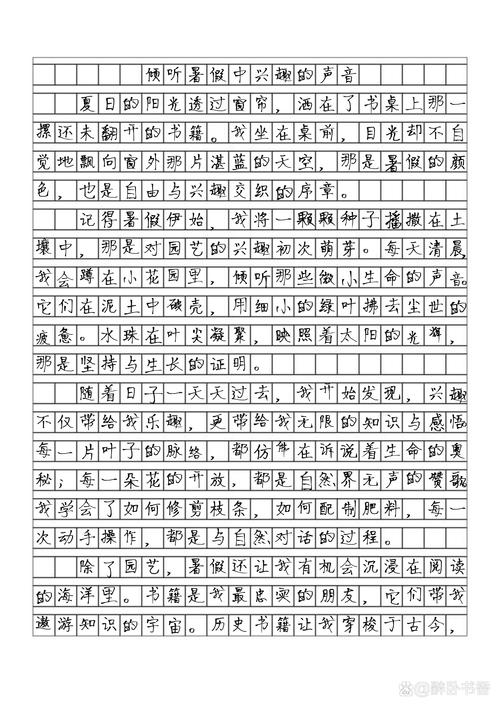 倾听暑假中兴趣的声音
夏日的阳光透过窗帘，洒在了书桌上那一
摞还未翻开的书籍。我坐在桌前，目光却不自
觉地飘向窗外那片湛蓝的天空，那是暑假的颜
色，也是自由与兴趣交织的序章。
记得暑假伊始，我将一颗颗种子播撒在土
壤中，那是对园艺的兴趣初次萌芽。每天清晨，
我会蹲在小花园里，倾听那些微小生命的声音。
它们在泥土中破壳，用细小的绿叶拂去尘世的
疲惫。水珠在叶尖凝聚，映照着太阳的光辉，
那是坚持与生长的证明。
随着日子一天天过去，我开始发现，兴趣
不仅带给我乐趣，更带给我无限的知识与感悟
每一片叶子的脉络，都仿佛在诉说着生命的奥
秘；每一朵花的开放，都是自然界无声的赞歌
我学会了如何修剪枝条，如何配制肥料，每一
次动手操作，都是与自然对话的过程。
除了园艺，暑假还让我有机会沉浸在阅读
的海洋里。书籍是我最忠实的朋友，它们带我
遨游知识的宇宙。历史书籍让我穿梭于古今，
@醉卧书香